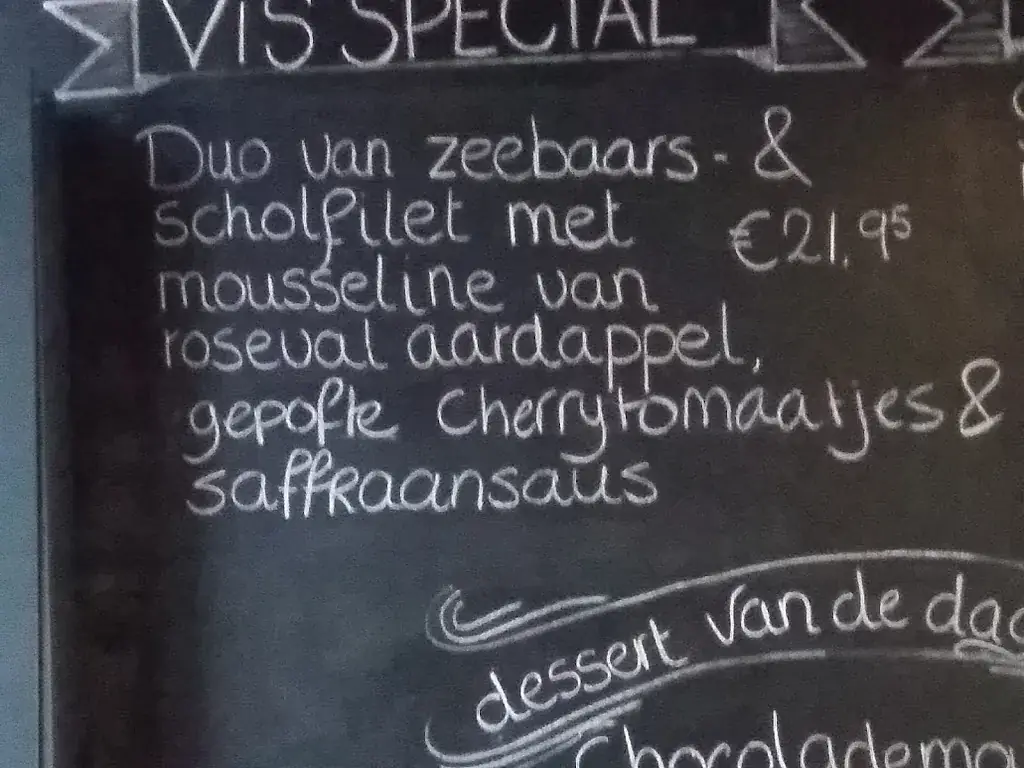 VIS SPECIAL
Duo van zeebaars- &
scholfilet met €21,95
mousseline van
roseval aardappel,
gepofte Cherrytomaatjes &
saffraansaus
dessert van de dag